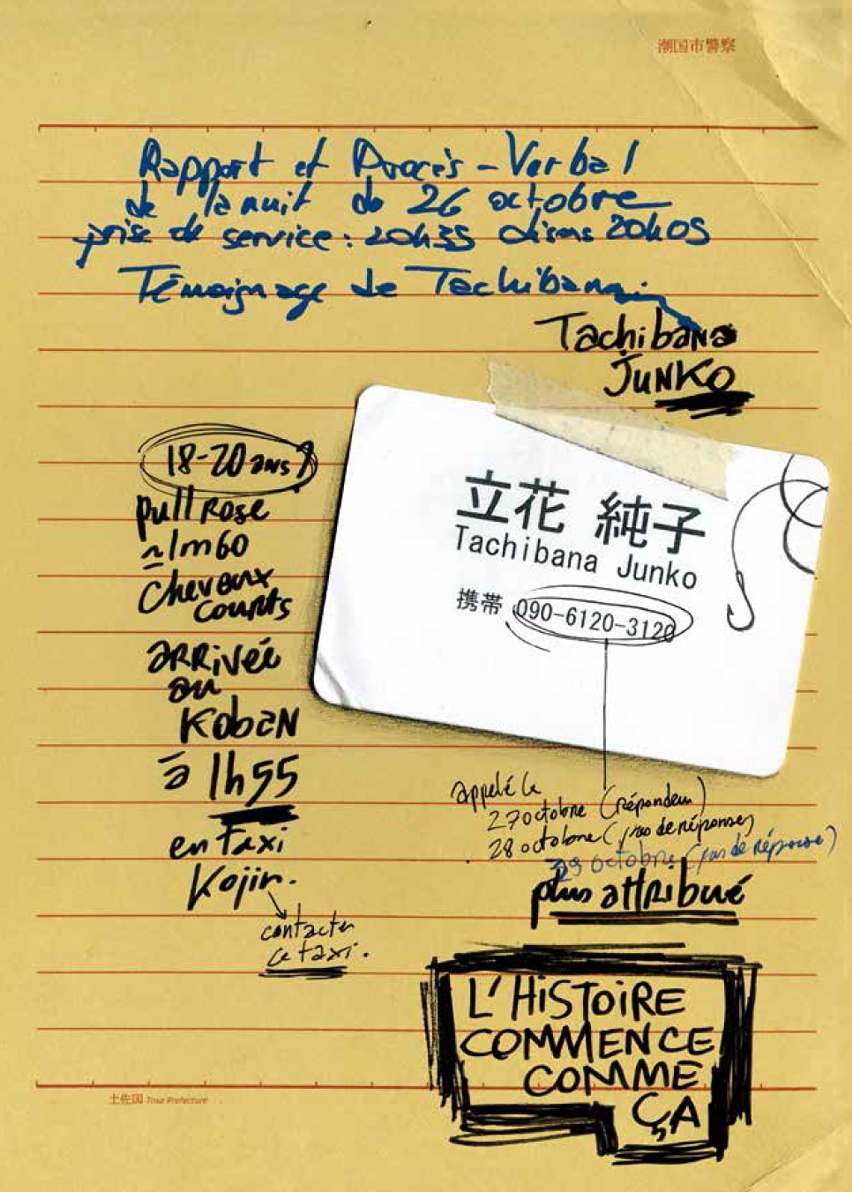 潮国市警察
Rapport et Procès-Verbal
de la nuit du 26 octobre
prise de service : 20h35 disons 20h05
Témoignage de Tachibana
Tachibana
JUNKO
18-20 ans ?
pull Rose
~1m60
cheveux
courts
ARRivée
au
KobaN
à 1h55
en taxi
Kojin.
contacter
ce taxi.
立花 純子
Tachibana Junko
携帯 090-6120-3120
appelé le
27 octobre (répondeur)
28 octobre (pas de réponse)
29 octobre (pas de réponse)
plus attribué
L'HiSTOiRE
COMMENCE
COMME
ÇA
土佐国 Tosa Prefecture